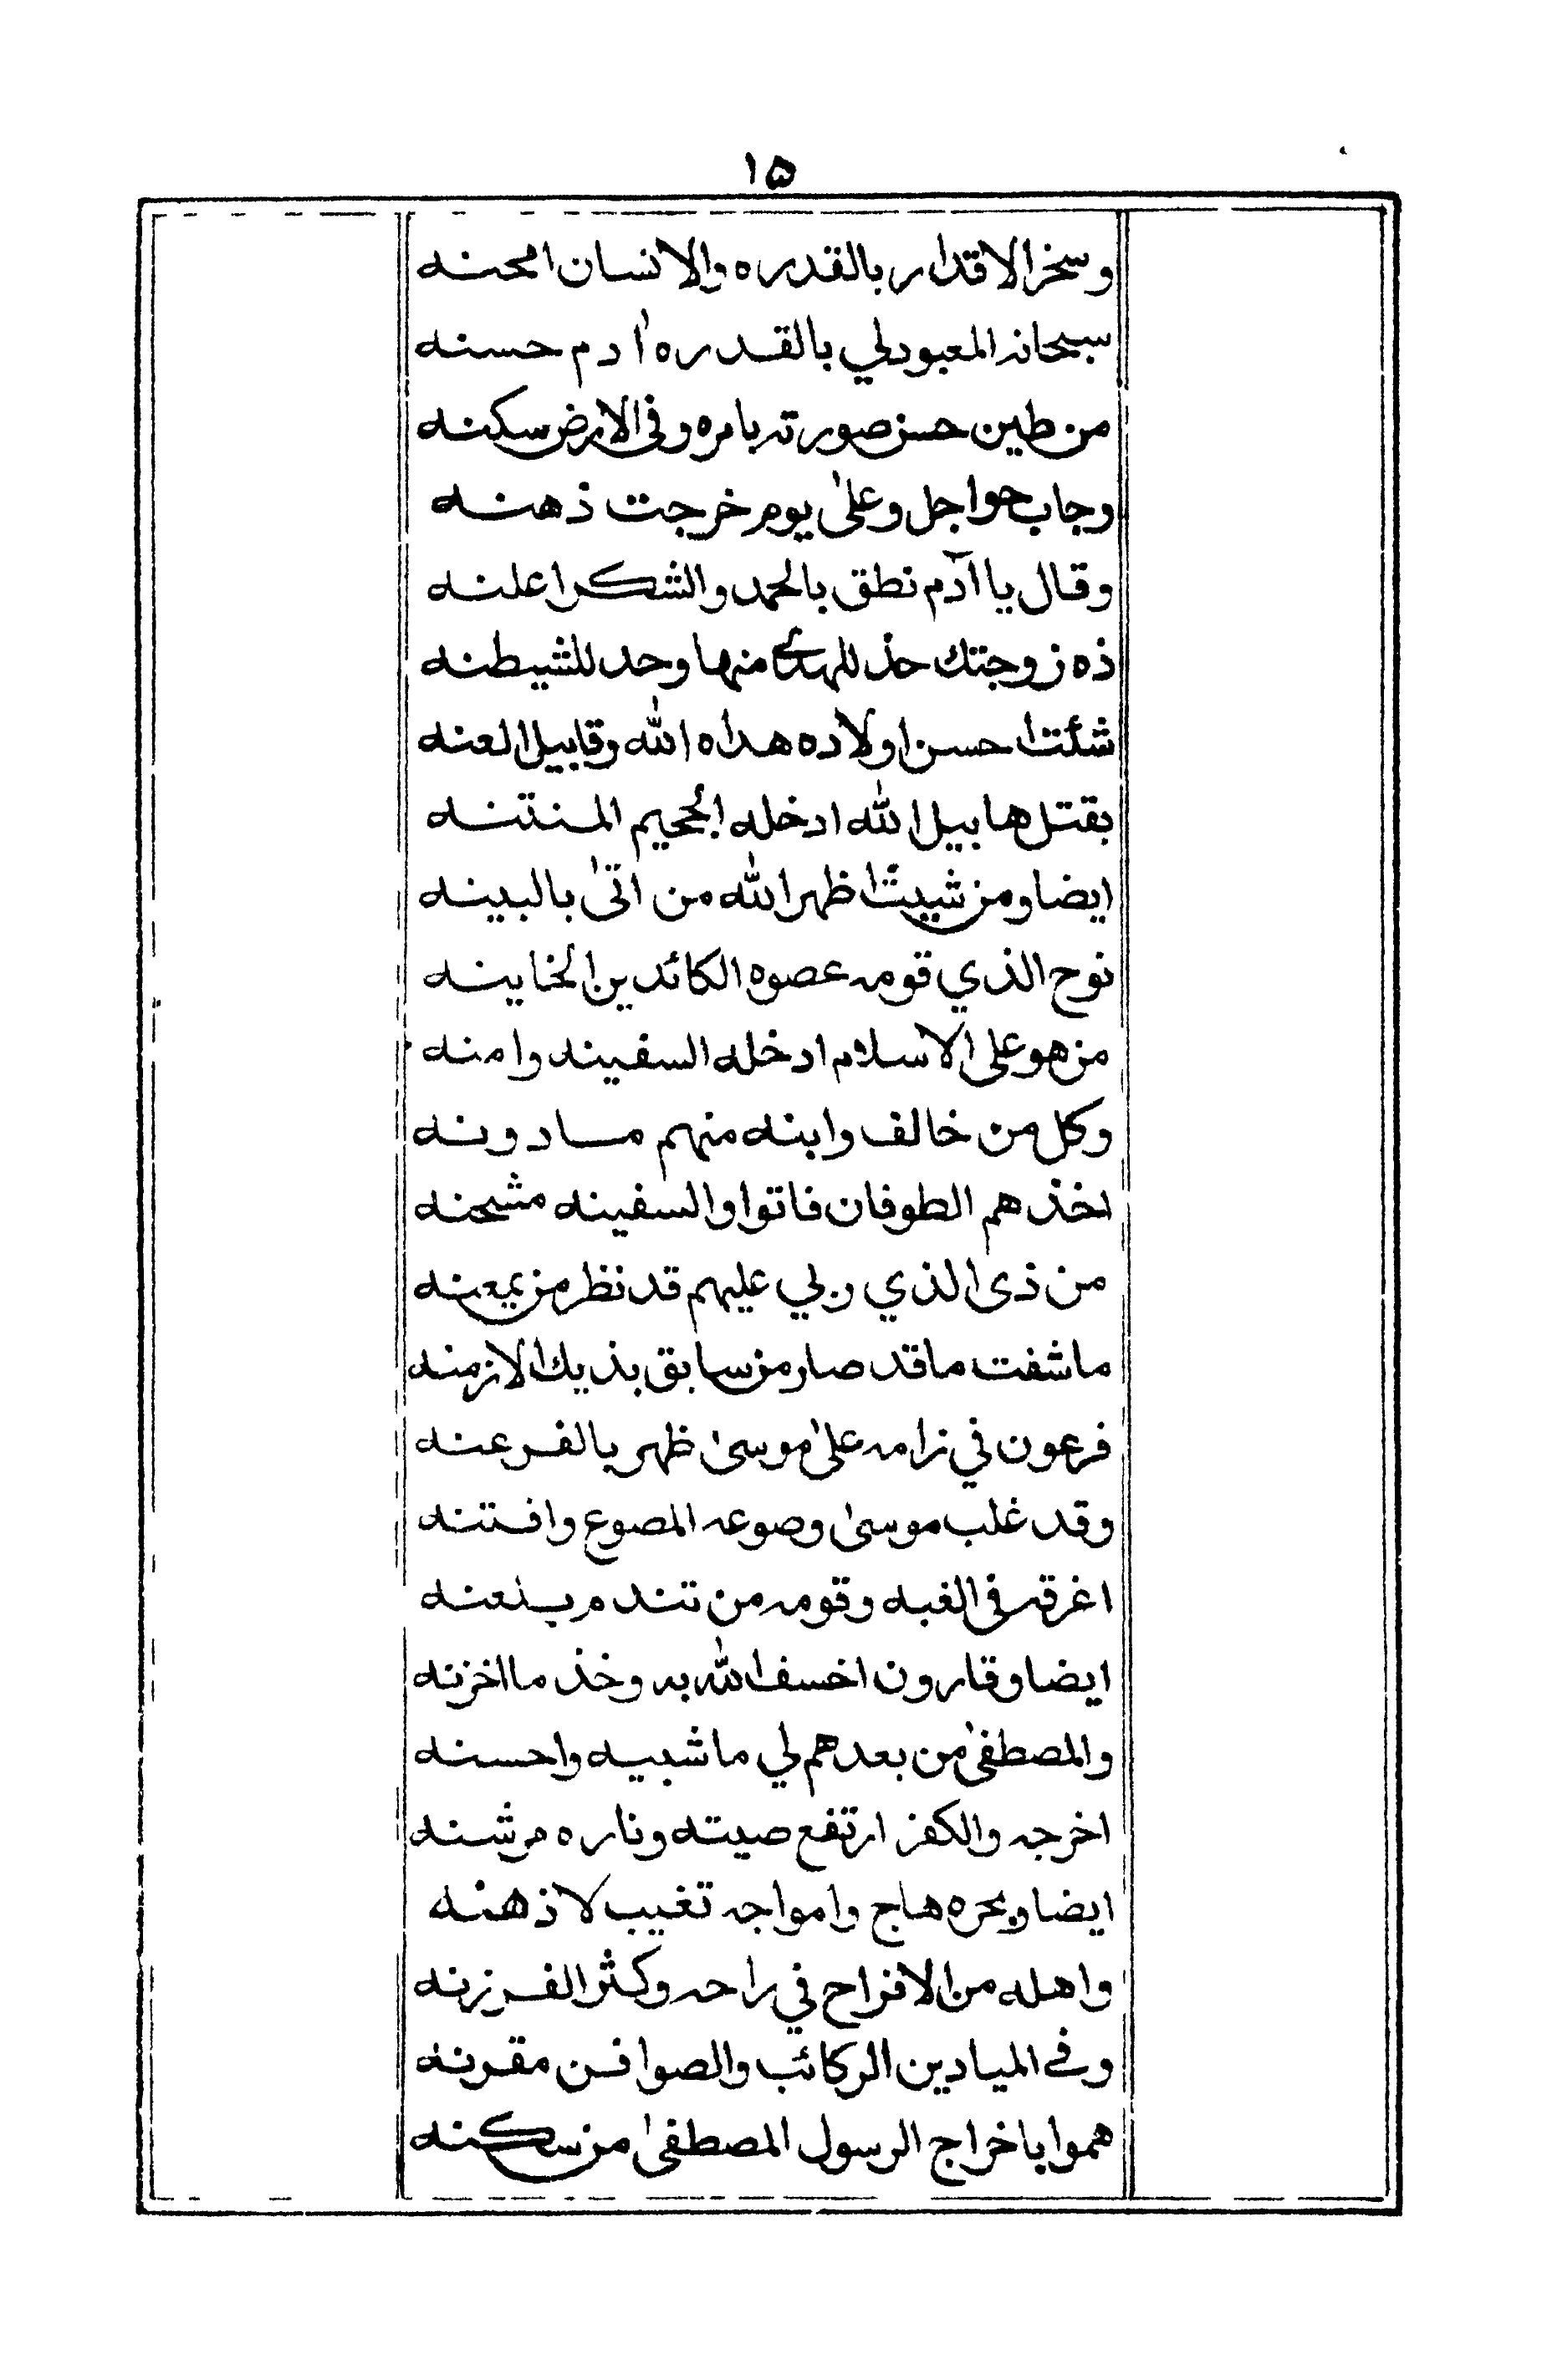 ١٥
وسخر الاقدار بالقدره والانسان امحنه
سبحانه المعبود لي بالقدره اٰدم حسنه
من طين حسن صورته بامره وفي الارض سكنه
وجاب حوا جل وعلىٰ يوم خرجت ذهنه
وقال يا اآدم نطق بالحمد والشكر اعلنه
ذه زوجتك حذ للهدى منها وحد للشيطنه
شئتا حسن اولاده هداه الله وقابيل العنه
بقتل هابيل الله ادخله الجحيم المنتنه
ايضا ومن شيثا ظهر الله من اتىٰ بالبينه
نوح الذي قومه عصوه الكائدين الخاينه
من هو على الاسلام ادخله السفينه وامنه
وكل من خالف وابنه منهم مسا دونه
اخذهم الطوفان فاتوا والسفينه مشحنه
من ذى الذي ربي عليهم قد نظر من يمعنه
ما شفت ما قد صار من سابق بذيك الازمنه
فرعون في زامه علىٰ موسىٰ ظهر بالفرعنه
وقد غلب موسىٰ وصوعه المصوع وافتنه
اغرقه في الغبه وقومه من تندم يلعنه
ايضا وقارون اخسف الله به وخذ ما اخزنه
والمصطفىٰ من بعدهم لي ما شبيه واحسنه
اخرجه والكفر ارتفع صيته وناره مرشنه
ايضا وبحره هاج وامواجه تغيب لا ذهنه
واهله من الافراح في راحه وكثر الفرزنه
وفي الميادين الركائب والصوافن مقرنه
هموا باخراج الرسول المصطفىٰ من سكنه